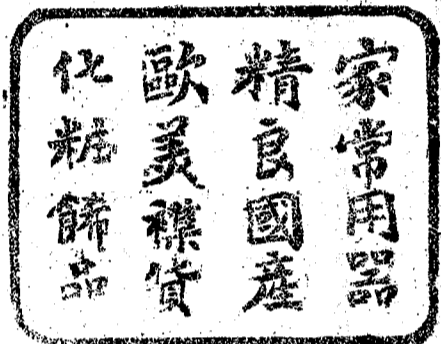 家常用器
精良國產
歐美襍貨
化粧餙品